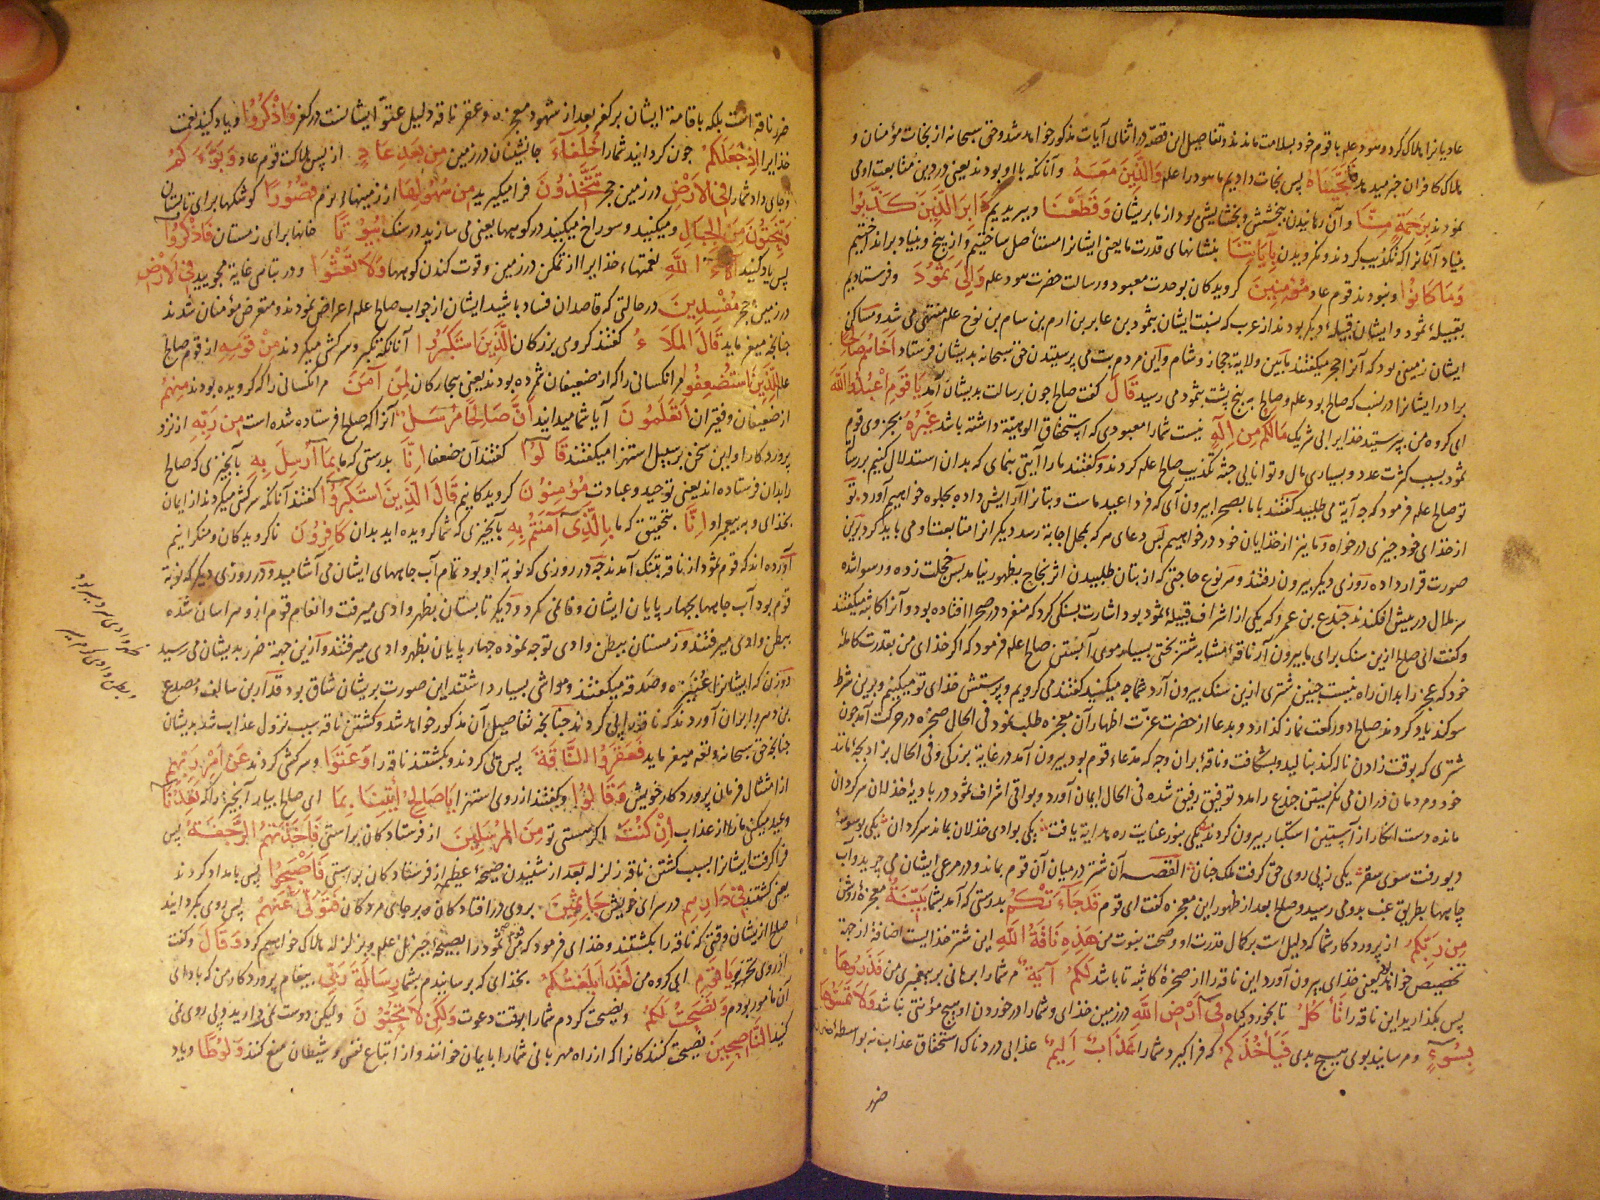 عادیانرا هلاک کرد و هود علم با قوم خود بسلامت ماندند و تفاصیل این قصه در اثنای آیات مذکور خواهد شد و حق سبحانه از نجات مؤمنان و
هلاک کافران خبر میدهد که فَأَنْجَيْنَاهُ پس نجات دادیم ما هود را علم وَالَّذِينَ مَعَهُ و آنانکه با او بودند یعنی در دین متابعت او می
نمودند بِرَحْمَةٍ مِنَّا و آن رهانیدن ببخشش و بخشایشی بود از ما بریشان وَقَطَعْنَا و ببریدیم دَابِرَ الَّذِينَ كَذَّبُوا
بنیاد آنانرا که تکذیب کردند و نکرویدند بِآيَاتِنَا بنشانهای قدرت ما یعنی ایشانرا مستاصل ساختیم و از بیخ و بنیاد برانداختیم
وَمَا كَانُوا و نبودند قوم عاد مُؤْمِنِينَ کرویدکان بوحدت معبود و رسالت حضرت هود علم وَإِلَى ثَمُودَ و فرستادیم
بقبیلهٔ ثمود و ایشان قبیلهٔ دیکر بودند از عرب که نسبت ایشان بثمود بن عابر بن ارم بن سام بن نوح علم منتهی می شد و مساکن
ایشان زمینی بود که آنرا حجر میکفتند مابین ولایة حجاز و شام و این مردم بت می پرستیدند حق سبحانه بدیشان فرستاد أَخَاهُمْ صَالِحًا
برادر ایشانرا در نسب که صالح بود علم و صالح به پنج پشت بثمود می رسید قَالَ کفت صالح جون برسالت بدیشان آمد يَا قَوْمِ اعْبُدُوا اللَّهَ
ای کروه من بپرستید خدایرا بی شریک مَا لَكُمْ مِنْ إِلَهٍ نیست شمارا معبودی که استحقاق الوهیة داشته باشد غَيْرُهُ بجز وی قوم
ثمود بسبب کثرت عدد و بسیاری مال و توانایی جثه تکذیب صالح علم کردند و کفتند مارا آیتی بنمای که بدان استدلال کنیم بر رسالت
تو صالح علم فرمود که جه آیة می طلبید کفتند با ما بصحرا بیرون آی که فردا عید ماست و بتانرا آرایش داده بجلوه خواهیم آورد تو
از خدای خود جیزی درخواه و ما نیز از خدایان خود درخواهیم پس دعای هر که بمحل اجابة رسد دیکرانرا متابعت او می باید کرد برین
صورت قرار داده روزی دیکر بیرون رفتند و هر نوع حاجتی که از بتان طلبیدند اثر نجاح بظهور نیامد پس خجلت زده و رسوا شده
سر ملال در پیش افکندند جندع بن عمرو که یکی از اشراف قبیلهٔ ثمود بود اشارت بسنکی کرد که منفرد در صحرا افتاده بود و آنرا کاثبه میکفتند
و کفت ای صالح ازین سنک برای ما بیرون آر ناقهٔ مشابه شتر بختی بسیار موی آبستن صالح علم فرمود که اکر خدای من بقدرت کاملهٔ
خود که عجز را بدان راه نیست جنین شتری ازین سنک بیرون آرد شما جه میکنید کفتند می کرویم و پرستش خدای تو میکنیم و برین شرط
سوکند یاد کردند صالح دو رکعت نماز کذارد و بدعا از حضرت عزت اظهار آن معجزه طلب نمود فی الحال صخره در حرکت آمد جون
شتری که بوقت زادن ناله کند بنالید و بشکافت و ناقهٔ بران وجه که مدعاء قوم بود بیرون آمد در غایة بزرکی و فی الحال بزاد بچهٔ مانند
خود و مردمان دران می نکریستند جندع را مدد توفیق رفیق شده فی الحال ایمان آورد و بواقی اشراف ثمود در بادیهٔ خذلان سرکردان
مانده دست انکار از آستین استکبار بیرون کردند یکی بنور عنایت ره هدایة یافت یکی بوادی خذلان بماند سرکردان یکی بوسوسهٔ
دیو رفت سوی سقر یکی ز پی روی حق کرفت ملک جنان القصه آن شتر در میان آن قوم بماند و در مرعی ایشان می چرید و آب
چاهها بطریق غب بدو می رسید و صالح بعد از ظهور این معجزه کفت ای قوم قَدْ جَاءَتْكُمْ بدرستی که آمد بشما بَيِّنَةٌ معجزهٔ روشن
مِنْ رَبِّكُمْ از پروردکار شما که دلیل است بر کمال قدرت او و صحت نبوت من هَذِهِ نَاقَةُ اللَّهِ این شتر خدایست اضافة از جهة
تخصیص خواند یعنی خدای بیرون آورد این ناقه را از صخرهٔ کاثبه تا باشد لَكُمْ آيَةً مر شما را برهانی بر پیغمبری من فَذَرُوهَا
پس بکذارید این ناقه را تَأْكُلْ تا بخورد کیاه فِي أَرْضِ اللَّهِ در زمین خدای و شما را در خوردن او هیچ مؤنتی نباشد وَلَا تَمَسُّوهَا
بِسُوءٍ و مرسانید بوی هیچ بدی فَيَأْخُذَكُمْ که فرا کیرد شمارا عَذَابٌ أَلِيمٌ عذابی دردناک استحقاق عذاب نه بواسطهٔ
ضرر
ضرر ناقه است بلکه باقامة ایشان بر کفر بعد از شهود معجزه و عقر ناقه دلیل عتو ایشانست در کفر وَاذْكُرُوا و یاد کنید نعمت
خدایرا إِذْ جَعَلَكُمْ جون کردانید شمارا خُلَفَاءَ جانشینان در زمین مِنْ بَعْدِ عَادٍ از پس هلاکت قوم عاد وَبَوَّأَكُمْ
و جای داد شمارا فِي الْأَرْضِ در زمین حجر تَتَّخِذُونَ فرا میکیرید مِنْ سُهُولِهَا از زمینهاء نرم قُصُورًا کوشکها برای تابستان
وَتَنْحِتُونَ مِنَ الْجِبَالِ و میکنید و سوراخ میکنید در کوهها یعنی می سازید در سنک بُيُوتًا خانها برای زمستان فَاذْكُرُوا
پس یاد کنید آلَاءَ اللَّهِ نعمتهاء خدایرا از تمکن در زمین و قوت کندن کوهها وَلَا تَعْثَوْا و در تباهی غایة مجویید فِي الْأَرْضِ
در زمین حجر مُفْسِدِينَ در حالتی که قاصدان فساد باشید ایشان از جواب صالح علم اعراض نمودند و متعرض مؤمنان شدند
جنانچه میفرماید قَالَ الْمَلَأُ کفتند کروهی بزرکان الَّذِينَ اسْتَكْبَرُوا آنانکه تکبر و سرکشی میکردند مِنْ قَوْمِهِ از قوم صالح
علم لِلَّذِينَ اسْتُضْعِفُوا مر آنکسانی را که از ضعیفان شمرده بودند یعنی بیچارکان لِمَنْ آمَنَ مر آنکسانی را که کرویده بودند مِنْهُمْ
از ضعیفان و فقیران أَتَعْلَمُونَ آیا شما میدانید أَنَّ صَالِحًا مُرْسَلٌ آنرا که صالح فرستاده شده است مِنْ رَبِّهِ از نزد
پروردکار او این سخن بر سبیل استهزا میکفتند قَالُوا کفتند آن ضعفا إِنَّا بدرستی که ما بِمَا أُرْسِلَ بِهِ بآنچیزی که صالح
را بدان فرستاده اند یعنی توحید و عبادت مُؤْمِنُونَ کرویدکانیم قَالَ الَّذِينَ اسْتَكْبَرُوا کفتند آنانکه سرکشی میکردند از ایمان
بخدای و به پیغمبر او إِنَّا بتحقیق که ما بِالَّذِي آمَنْتُمْ بِهِ بآنچیزی که شما کرویده اید بدان كَافِرُونَ ناکرویدکان و منکرانیم
آورده اند که قوم ثمود از ناقه بتنک آمدند جه در روزی که نوبة او بود تمام آب جاههای ایشان می آشامید و در روزی دیکر که نوبة
قوم بود آب جاهها بچهار پایان ایشان وفا نمی کرد و دیکر تابستان بظهر وادی میرفت و انعام قوم ازو هراسان شده
ببطن وادی میرفتند و زمستان ببطن وادی توجه نموده جهارپایان بظهر وادی میرفتند و ازین جهة ضرر بدیشان می رسید
دو زن که ایشانرا عنیزه و صدقه میکفتند و مواشی بسیار داشتند این صورت بریشان شاق بود قدار بن سالف و مصدع
بن دهر را بران آوردند که ناقه را پی کردند جنانچه تفاصیل آن مذکور خواهد شد و کشتن ناقه سبب نزول عذاب شد بدیشان
جنانچه حق سبحانه و تعالی میفرماید فَعَقَرُوا النَّاقَةَ پس پی کردند و بکشتند ناقه را وَعَتَوْا و سرکشی کردند عَنْ أَمْرِ رَبِّهِمْ
از امتثال فرمان پروردکار خویش وَقَالُوا و کفتند از روی استهزا يَا صَالِحُ ائْتِنَا بِمَا ای صالح بیار آنچیز را که تَعِدُنَا
وعید میکنی مارا از عذاب إِنْ كُنْتَ اکر هستی تو مِنَ الْمُرْسَلِينَ از فرستادکان براستی فَأَخَذَتْهُمُ الرَّجْفَةُ پس
فرا کرفت ایشانرا بسبب کشتن ناقه زلزله بعد از شنیدن صیحهٔ عظیم از فرستادکان براستی فَأَصْبَحُوا پس بامداد کردند
یعنی کشتند فِي دَارِهِمْ در سرای خویش جَاثِمِينَ بروی در افتادکان بر جای مردکان فَتَوَلَّى عَنْهُمْ پس روی بکردانید
صالح ازیشان وقتی که ناقه را بکشتند و خدای فرمود که من قوم ثمود را بصیحهٔ جبرئیل علم و بزلزله هلاک خواهیم کرد وَقَالَ و کفت
از روی تحسر يَا قَوْمِ ای کروه من لَقَدْ أَبْلَغْتُكُمْ بخدای که برسانیدم بشما رِسَالَةَ رَبِّي پیغام پروردکار من که بادای
آن مأمور بودم وَنَصَحْتُ لَكُمْ و نصیحت کردم شمارا بوقت دعوت وَلَكِنْ لَا تُحِبُّونَ و لیکن دوست نمی دارید و پی روی نمی
کنید النَّاصِحِينَ نصیحت کنندکانرا که از راه مهربانی شمارا بایمان خوانند و از اتباع نفس و شیطان منع کنند وَلُوطًا و یاد
ظهر وادی سردسیر بود
و بطن وادی کرمسیر